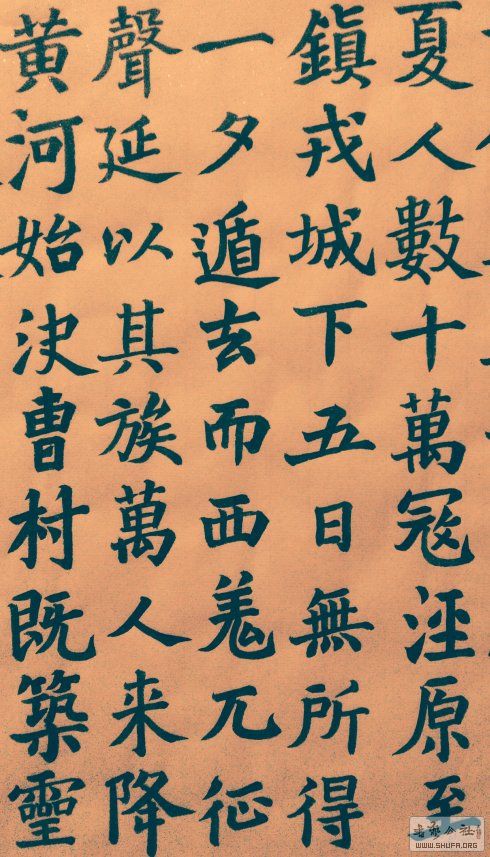 夏人數十萬冦涇原至
鎮戎城下五日無所得
一夕遁去而西羌兀征
聲延以其族萬人来降
黄河始決曹村既築靈
WWW.SHUFA.ORG